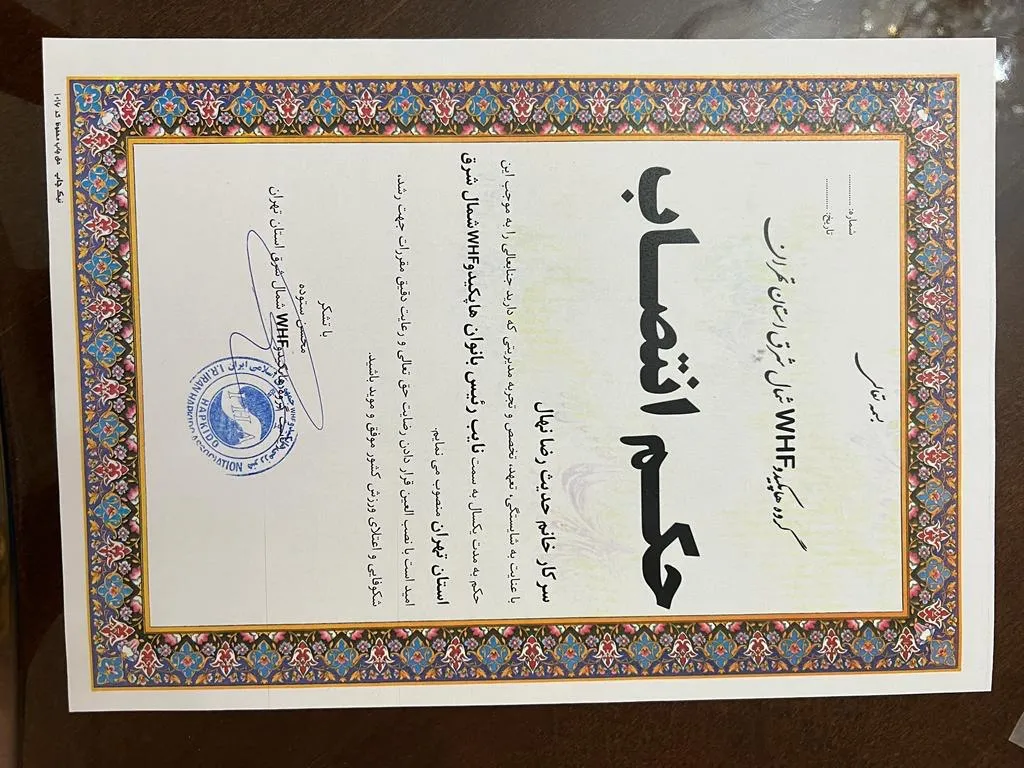 بسمه تعالی
شماره: ............
تاریخ: ............
گروه هاپکیدو WHF شمال شرق استان تهران
حکم انتصاب
سرکار خانم حدیث رضا نهال
با عنایت به شایستگی، تعهد، تخصص و تجربه مدیریتی که دارید جنابعالی را به موجب این
حکم به مدت یکسال به سمت نایب رئیس بانوان هاپکیدوWHF شمال شرق
استان تهران منصوب می نمایم.
امید است با نصب العین قرار دادن رضایت حق تعالی و رعایت دقیق مقررات جهت رشد،
شکوفایی و اعتلای ورزش کشور موفق و موید باشید.
با تشکر
محسن ستوده
هاپکیدوWHF شمال شرق استان تهران
HAPKIDO
I.R.IRAN HAPKIDO ASSOCIATION